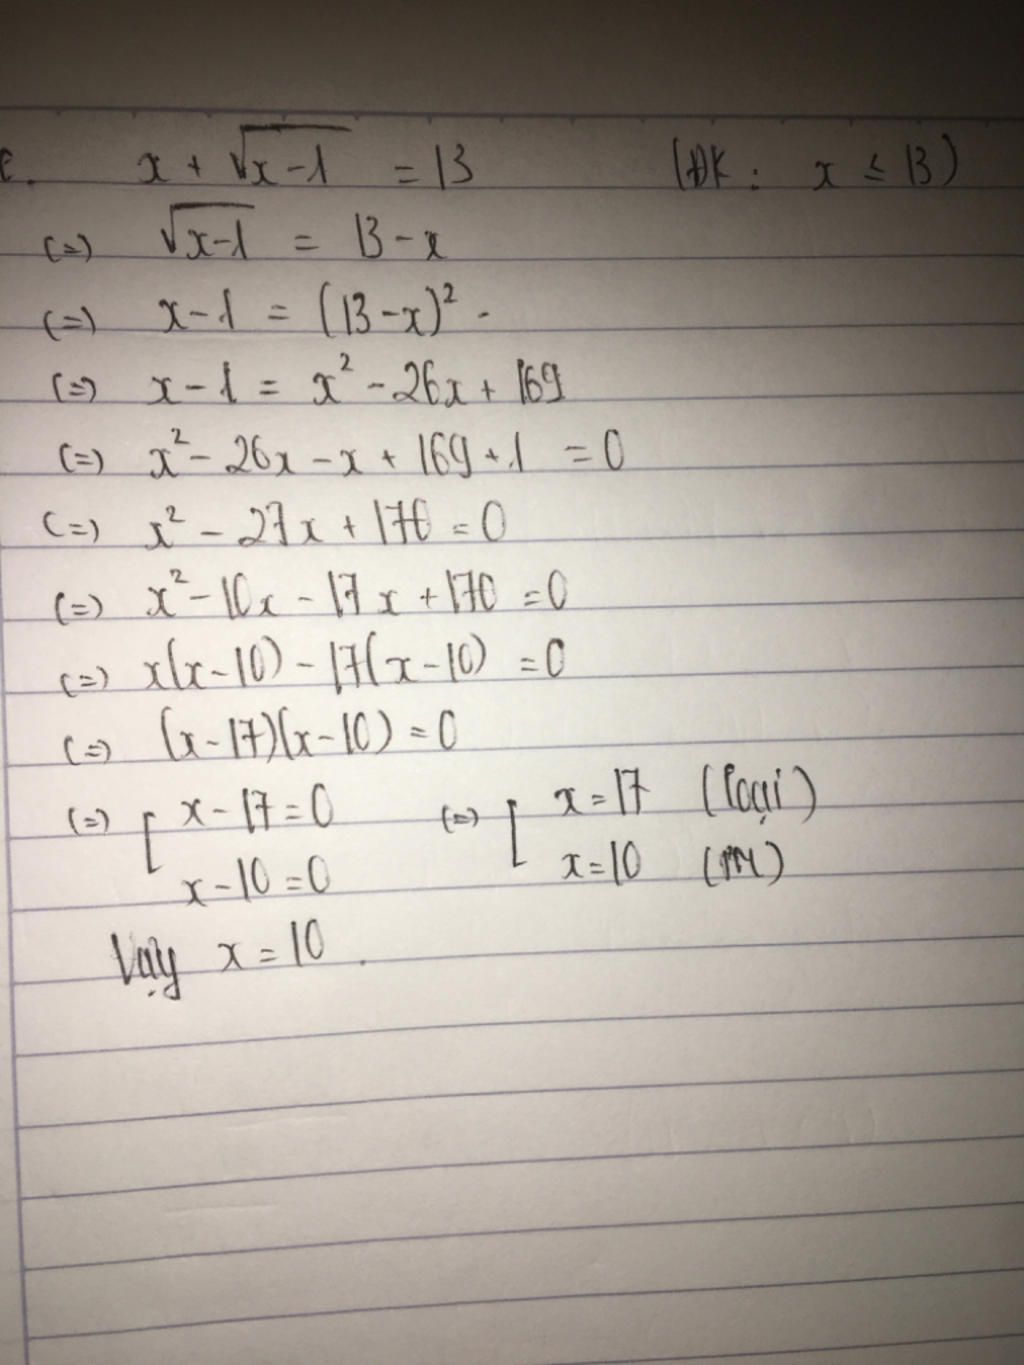 c. x + √x-1 = 13 (ĐK : x ≤ 13)
(=) √x-1 = 13 - x
(=) x - 1 = (13 - x)² .
(=) x - 1 = x² - 26x + 169
(=) x² - 26x - x + 169 + 1 = 0
(=) x² - 27x + 170 = 0
(=) x² - 10x - 17x + 170 = 0
(=) x(x - 10) - 17(x - 10) = 0
(=) (x - 17)(x - 10) = 0
(=) [ x - 17 = 0 (=) [ x = 17 (loại)
x - 10 = 0 x = 10 (TM)
Vậy x = 10 .